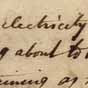 electricity
g about to
ming as